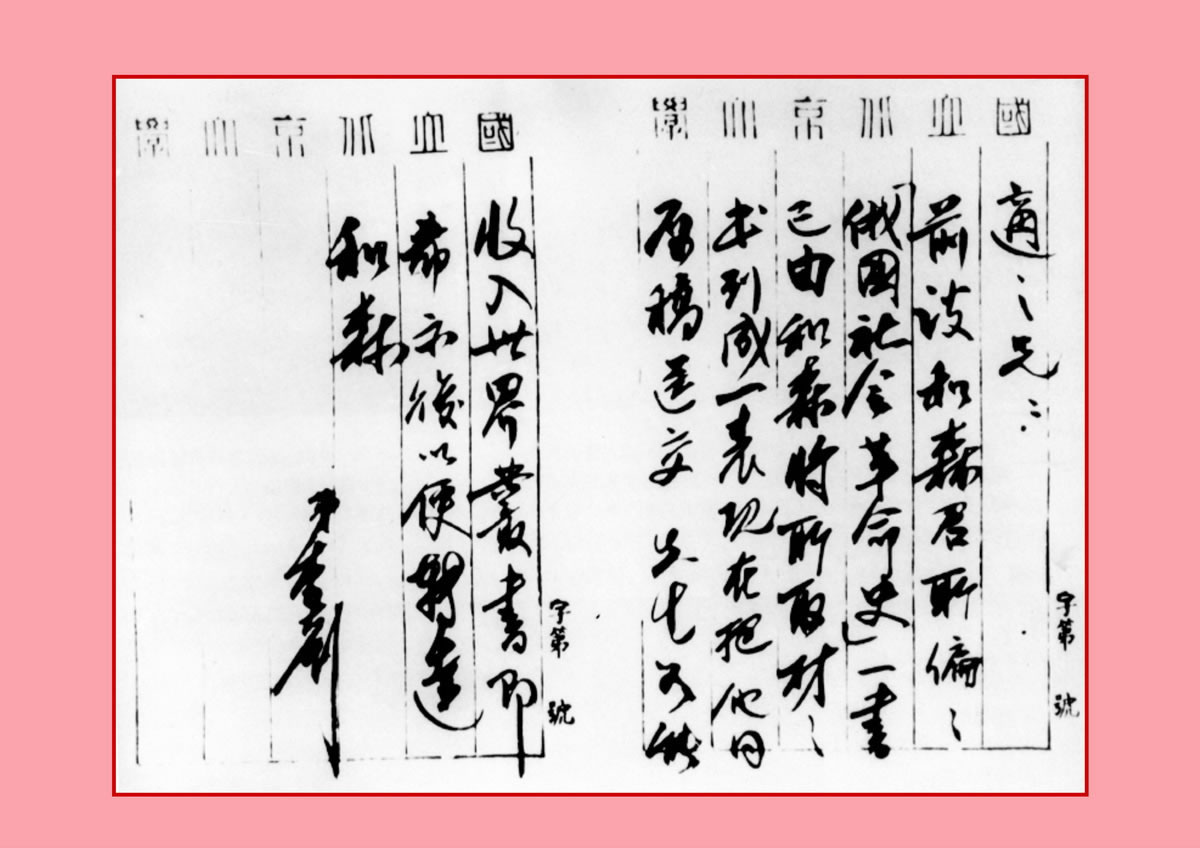 國立北京大學
適之兄：
前談和森君所編之
「俄國社會革命史」一書
已由和森將所取材之
书列成一表現在把他同
原稿送交 先生如能
字第 號
國立北京大學
收入世界叢書即
希示復以便轉達
和森
弟李大釗
字第 號